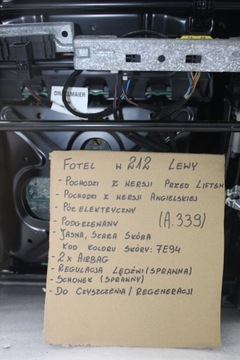 DRÄXLMAIER
FOTEL W 212 LEWY
- POCHODZI Z WERSJI PRZED LIFTEM
- POCHODZI Z WERSJI ANGIELSKIEJ
- PÓŁ ELEKTRYCZNY
- PODGRZEWANY (A.339)
- JASNA, SZARA SKÓRA
KOD KOLORU SKÓRY: 7E94
- 2x AIRBAG
- REGULACJA LĘDŹWI (SPRAWNA)
- SCHOWEK (SPRAWNY)
- DO CZYSZCZENIA / REGENERACJI